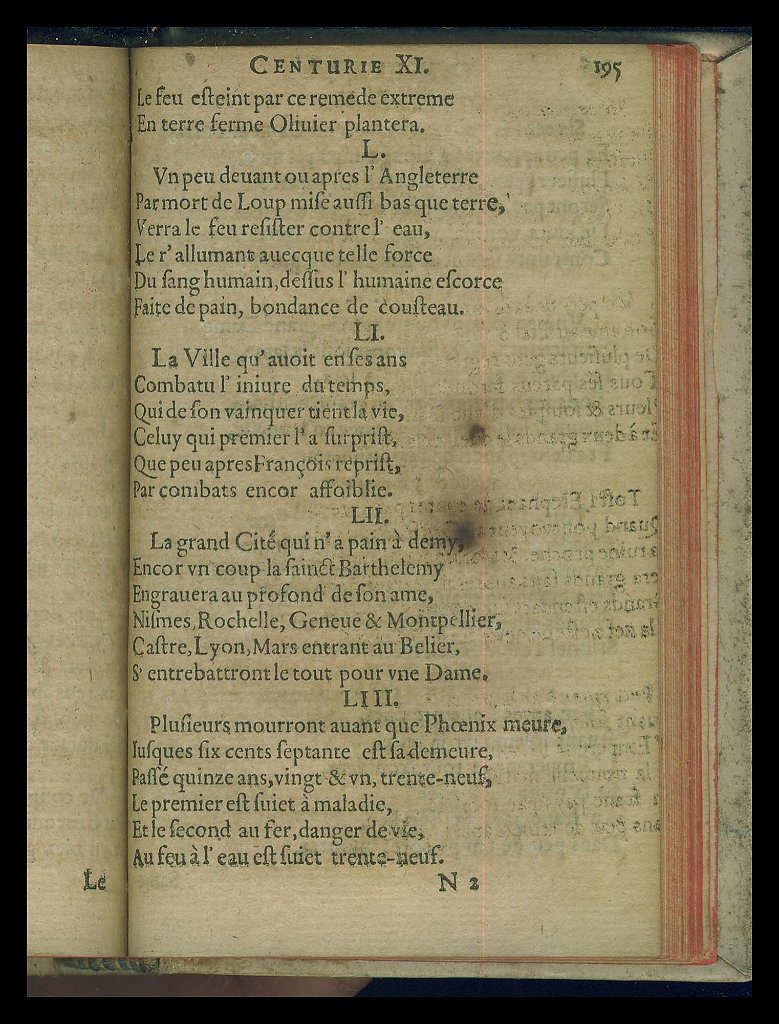 CENTURIE XI. 195
Le feu eſteint par ce remede extreme
En terre ferme Oliuier plantera.
L.
Vn peu deuant ou apres l' Angleterre
Par mort de Loup miſe auſſi bas que terre,
Verra le feu reſiſter contre l' eau,
Le r'allumant auecque telle force
Du ſang humain, deſſus l' humaine eſcorce
Faite de pain, bondance de couſteau.
LI.
La Ville qu'auoit en ſes ans
Combatu l' iniure du temps,
Qui de ſon vainquer tient la vie,
Celuy qui premier l'a ſurpriſt,
Que peu apres François repriſt,
Par combats encor affoiblie.
LII.
La grand Cité qui n'a pain à demy,
Encor vn coup la ſainct Barthelemy
Engrauera au profond de ſon ame,
Niſmes, Rochelle, Geneue & Montpellier,
Caſtre, Lyon, Mars entrant au Belier,
S' entrebattront le tout pour vne Dame.
LIII.
Pluſieurs mourront auant que Phœnix meure,
Iuſques ſix cents ſeptante eſt ſa demeure,
Paſſé quinze ans, vingt & vn, trente-neuf,
Le premier eſt ſuiet à maladie,
Et le ſecond au fer, danger de vie,
Au feu à l' eau eſt ſuiet trente-neuf.
Le
N 2